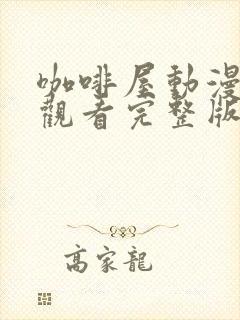 咖啡屋動漫
觀看完整版
高家龍